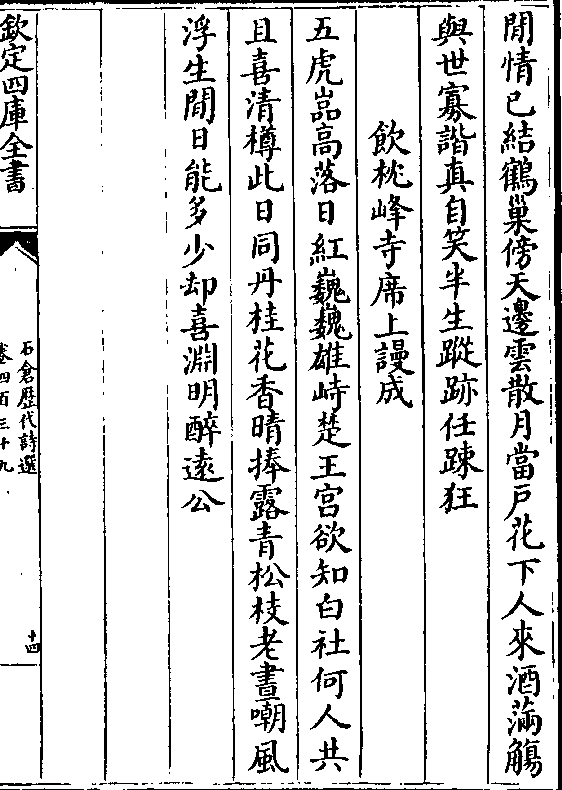 閒情已結鶴巢傍天邊雲散月當戸花下人來酒滿觴
與世寡諧真自笑半生蹤跡任踈狂
飲桃峰寺席上謾成
五虎嵓高落日紅巍巍雄峙楚王宫欲知白社何人共
且喜清樽此日同丹桂花香晴捧露青松枝老晝嘲風
浮生閒日能多少却喜淵明醉遠公
欽定四庫全書
石倉歴代詩選
卷四百三十九
十四